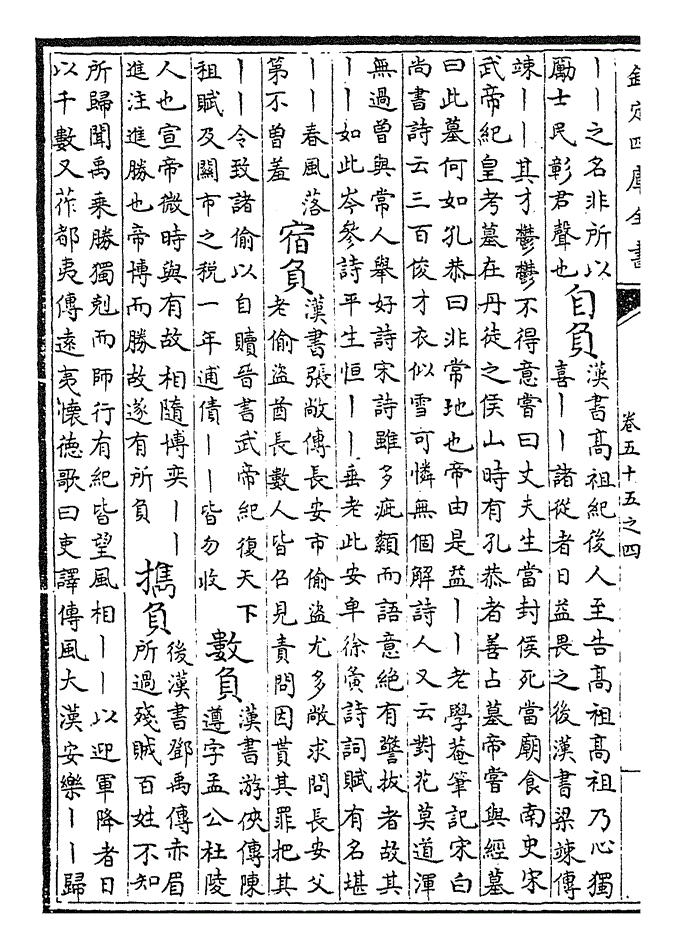 欽定四庫全書
卷五十五之四
丨丨之名非所以
勵士民彰君聲也
自負
漢書髙祖紀後人至告髙祖髙祖乃心獨
喜丨丨諸從者日益畏之後漢書梁竦傳
竦丨丨其才鬱鬱不得意嘗曰丈夫生當封侯死當廟食南史宋
武帝紀皇考墓在丹徒之侯山時有孔恭者善占墓帝嘗與經墓
曰此墓何如孔恭曰非常地也帝由是益丨丨老學菴筆記宋白
尚書詩云三百俊才衣似雪可憐無個解詩人又云對花莫道渾
無過曾與常人舉好詩宋詩雖多疵纇而語意絕有警拔者故其
丨丨如此岑參詩平生恒丨丨垂老此安卑徐夤詩詞賦有名堪
丨丨春風落
第不曾羞
宿負
漢書張敞傳長安市偷盜尤多敞求問長安父
老偷盜酋長數人皆召見責問因貰其罪把其
丨丨令致諸偷以自贖晉書武帝紀復天下
租賦及關市之稅一年逋債丨丨皆勿收
數負
漢書游俠傳陳
遵字孟公杜陵
人也宣帝微時與有故相隨博奕丨丨
進注進勝也帝博而勝故遂有所負
擕負
後漢書鄧禹傳赤眉
所過殘賊百姓不知
所歸聞禹乘勝獨剋而師行有紀皆望風相丨丨以迎軍降者日
以千數又莋都夷傳遠夷懷德歌曰吏譯傳風大漢安樂丨丨歸